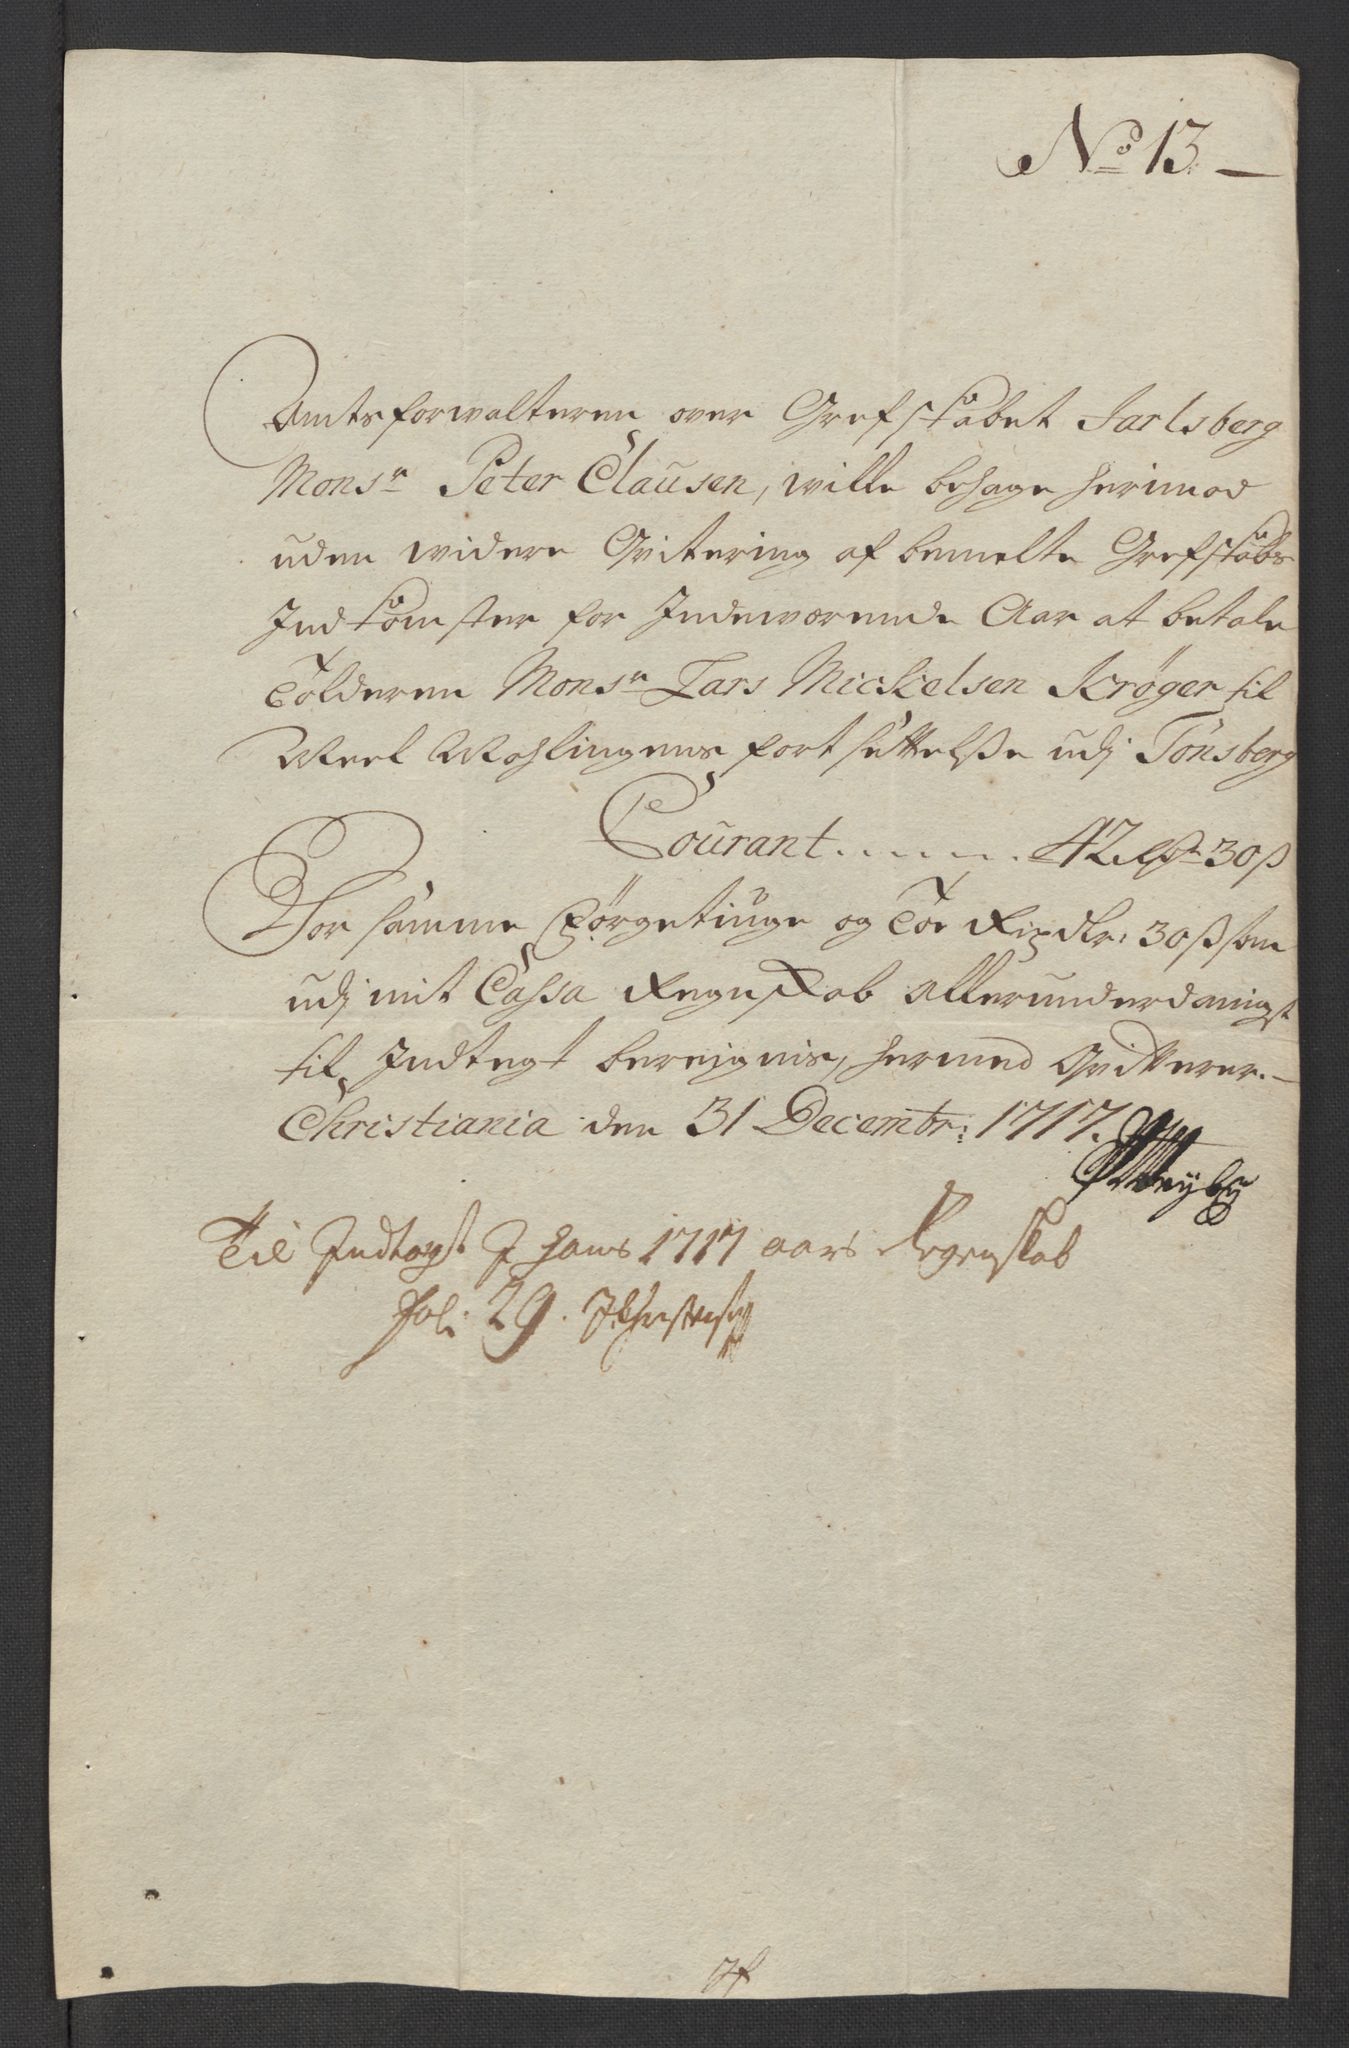 No 13 —
Amtsforwalteren over Grefskabet Jarlsberg
Monsr Peter Clausen, wille behage herimod
uden widere Qvitering af bemelte Grefskabs
Indkomster for Indeværende Aar at betale
Tolderen Monsr Lars Mickelsen Krøger til
Meel Mahlingens fortsettelße udj Tønsberg
Courant . . . . . 42 Rdr 30 ß
Hvor samme Fyrgetiuge og Toe Rixdlr: 30 ß som
udj mit Cassa Regnskab allerunderdanigst
til Indtegt bereignis, hermed Qvitterer. —
Christiania den 31 Decembr: 1717.
Til Indtægt J hans 1717 aars Regenskab
fol: 29.